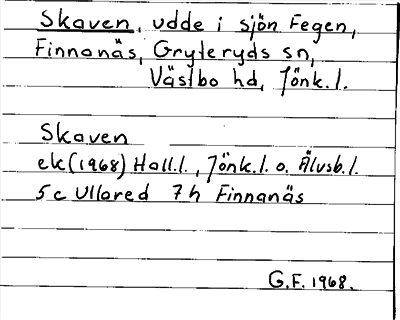 Skaven, udde i sjön Fegen,
Finnanäs, Gryteryds sn,
Västbo hd, Jönk.l.
Skaven
ek(1968) Hall.l., Jönk.l. o. Älvsb.l.
5c Ullared 7h Finnanäs
G.F. 1968.